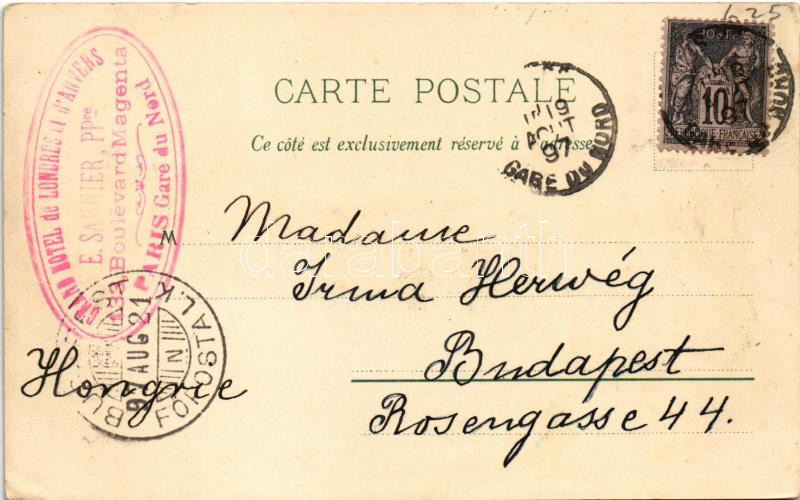 625
POSTES
10
REPUBLIQUE FRANÇAISE
CARTE POSTALE
Ce côté est exclusivement réservé à l'adresse
19
AOUT
97
GARE DU NORD
GRAND HOTEL de LONDRES et d'ANVERS
E. SAUNIER, PPre
133, Boulevard Magenta
PARIS Gare du Nord
M
Madame
Irma Herwég
Budapest
Rosengasse 44.
Hongrie
97 AUG 21
N
FÖPOSTA L.K.
darabanth